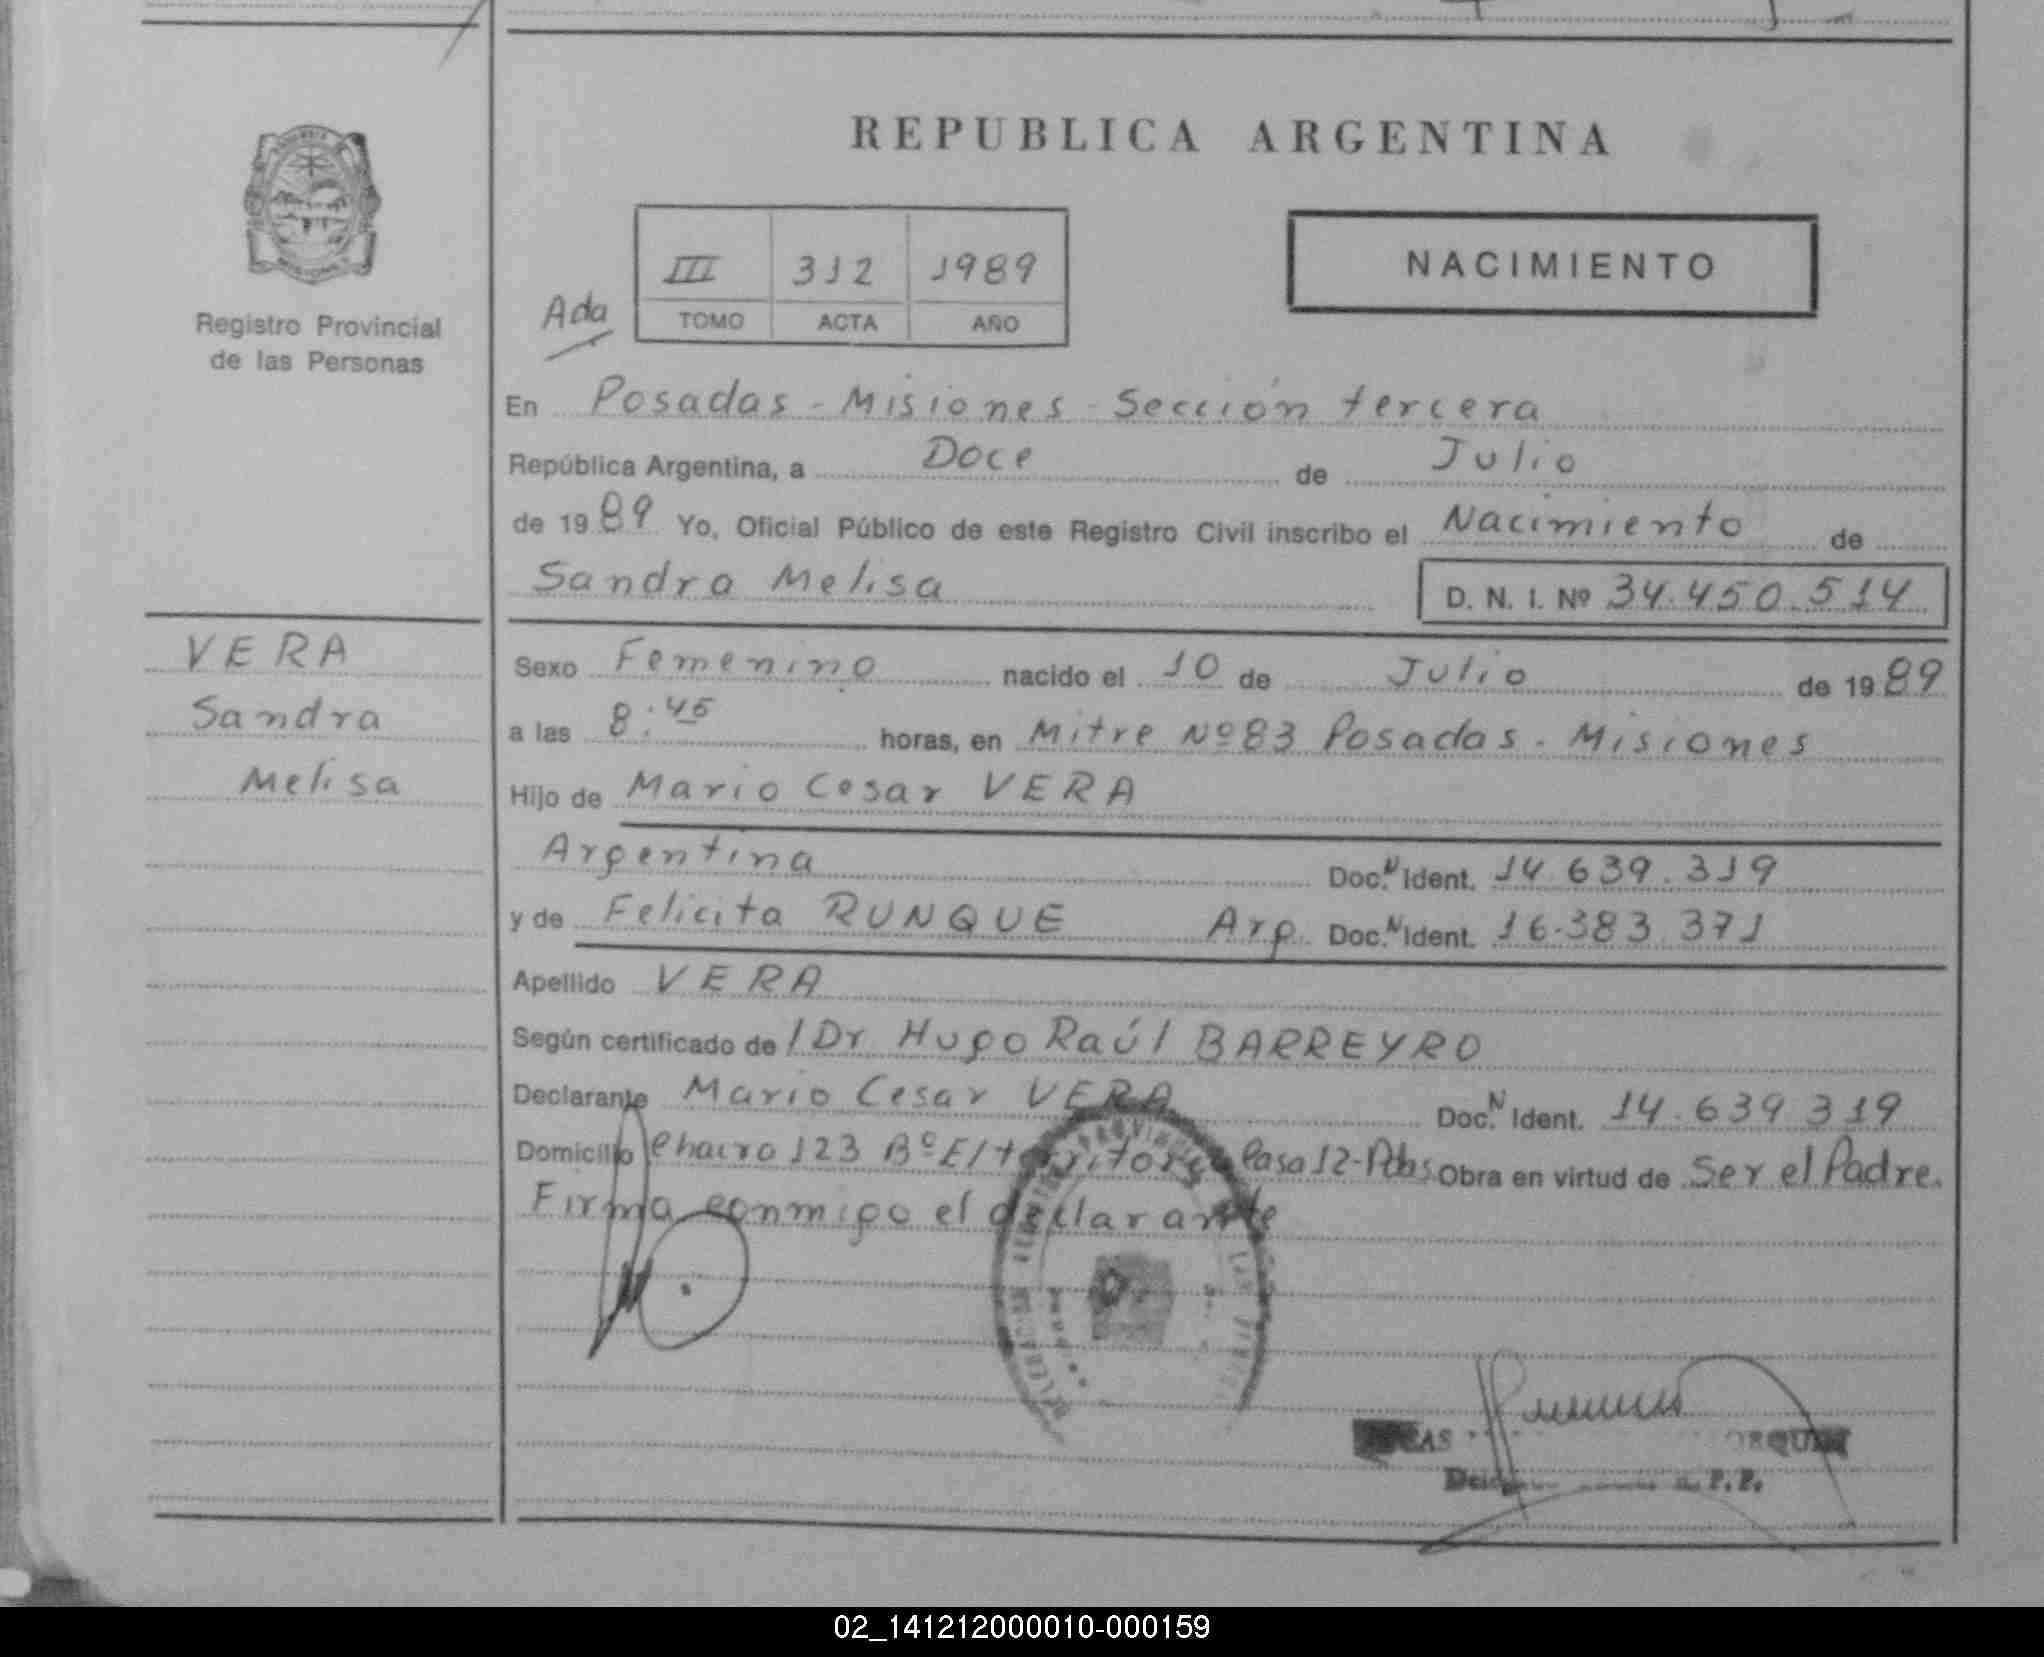 REPUBLICA ARGENTINA
Registro Provincial
de las Personas
III 312 1989
TOMO ACTA AÑO
NACIMIENTO
Ada
En Posadas - Misiones - Sección tercera
República Argentina, a Doce de Julio
de 1989 Yo, Oficial Público de este Registro Civil inscribo el Nacimiento de
Sandra Melisa D. N. I. Nº 34.450.514
VERA
Sandra
Melisa
Sexo Femenino nacido el 10 de Julio de 1989
a las 8:45 horas, en Mitre Nº 83 Posadas - Misiones
Hijo de Mario Cesar VERA
Argentina Doc. N Ident. 14.639.319
y de Felicita RUNQUE Arg. Doc. N Ident. 16.383.371
Apellido VERA
Según certificado de / Dr Hugo Raúl BARREYRO
Declarante Mario Cesar VERA Doc. N Ident. 14.639.319
Domicilio 123 Bº El 12-Pdas Obra en virtud de Ser el Padre.
Firma conmigo el declarante
02_141212000010-000159